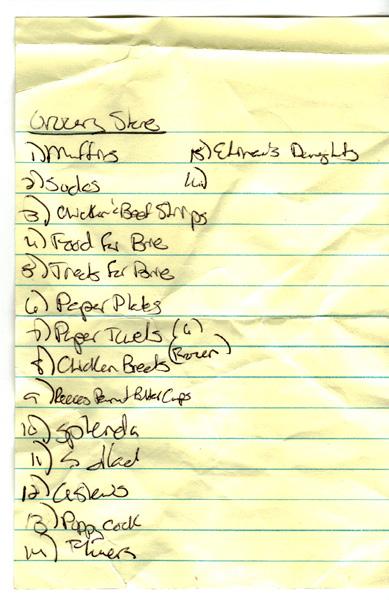 Grocery Stores
1) Muffins
2) Sodas
3) Chicken & Beef Strips
4) Food For
5) Treats For
6) Paper Plates
7) Paper Towels (6)
8) Chicken Breasts (Frozen)
9) Reeces Peanut Butter Cups
10) Splenda
11) Salad
12) Cashews
13) Poppycock
14)
15) Doughnuts
16)